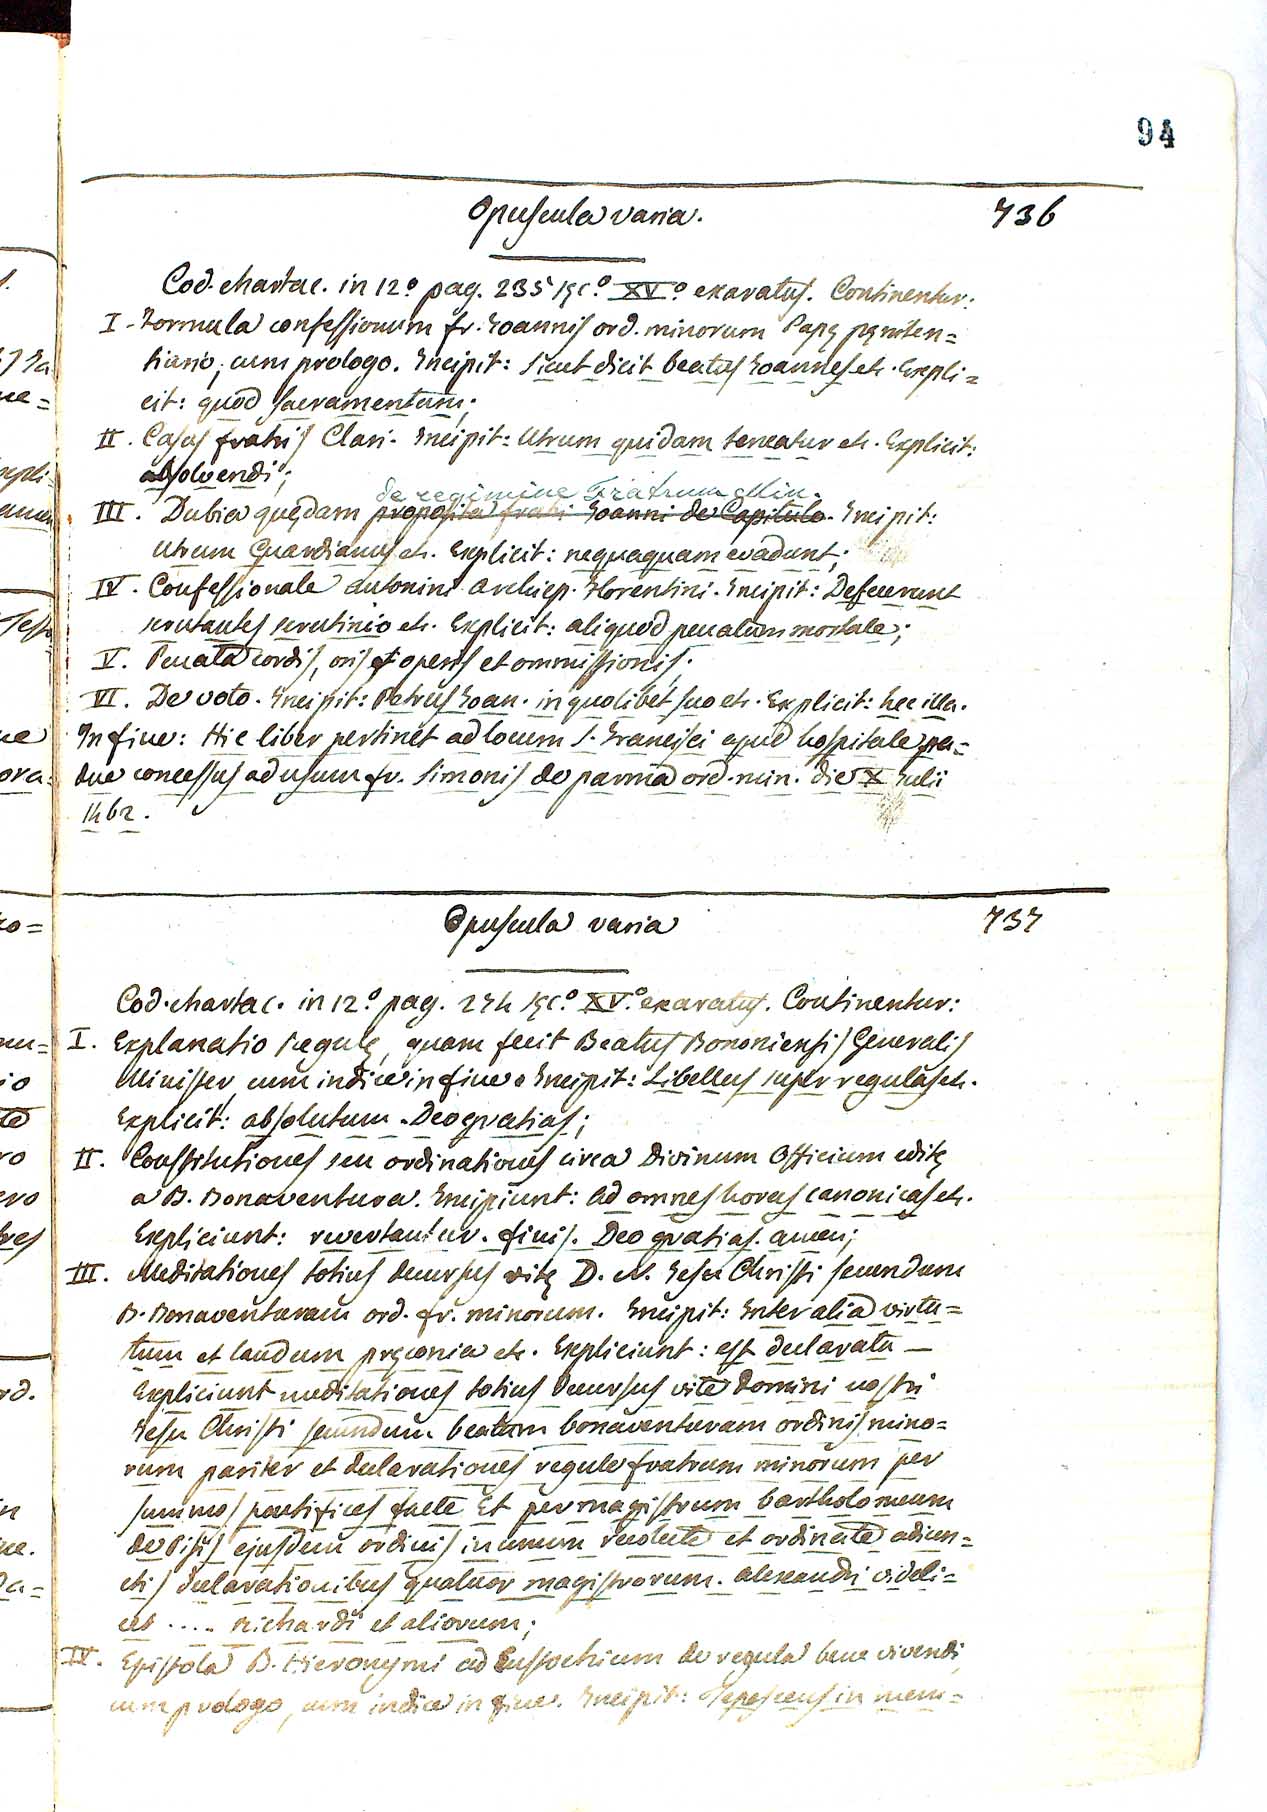 94
Opuscula varia. 736
Cod. chartac. in 12.º pag. 235 sec.º XV.º exaratus. Continentur:
I. Formula confessionum fr. Joannis ord. minorum Papę pęniten=
tiarii, cum prologo. Incipit: Sicut dicit beatus Joannes etc. Expli=
cit: quod sacramentum;
II. Casus fratris Clari. Incipit: Utrum quidam teneatur etc. Explicit:
absolvendi;
de regimine Fratrum Min.
III. Dubia quędam proposita fratri Joanni de Capitulo. Incipit:
Utrum Guardianus etc. Explicit: nequaquam evadunt;
IV. Confessionale Antonini Archiep. Florentini. Incipit: Defecerunt
scrutantes scrutinio etc. Explicit: aliquod peccatum mortale;
V. Peccata cordis, oris et operis et ommissionis;
VI. De voto. Incipit: Petrus Joan. in quolibet suo etc. Explicit: hec illa.
In fine: Hic liber pertinet ad locum S. Francisci apud hospitale pa=
due concessus ad usum fr. Simonis de parma ord. min. die X Julii
1462.
Opuscula varia 737
Cod. chartac. in 12.º pag. 274 sec.º XV.º exaratus. Continentur:
I. Explanatio regulę, quam fecit Beatus Bononiensis Generalis
Minister, cum indice in fine. Incipit: Libellus super regulas etc.
Explicit: absolutum. Deo gratias;
II. Constitutiones seu ordinationes circa Divinum Officium editę
a B. Bonaventura. Incipiunt: Ad omnes horas canonicas etc.
Expliciunt: revertantur. finis. Deo gratias. amen;
III. Meditationes totius decursus vitę D. N. Jesu Christi secundum
B. Bonaventuram ord. fr. minorum. Incipit: Inter alia virtu=
tum et laudum pręconia etc. Expliciunt: est declarata —
Expliciunt meditationes totius decursus vite domini nostri
Jesu Christi secundum beatum bonaventuram ordinis mino=
rum pariter et declarationes regule fratrum minorum per
summos pontifices facte Et per magistrum bartholomeum
de Pisis ejusdem ordinis in unum recolecte et ordinate adiun=
ctis declarationibus quatuor magistrorum. alexandri videli=
cet .... Richardi et aliorum;
IV. Epistola B. Hieronymi ad Eustochium de regula bene vivendi,
cum prologo, cum indice in fine. Incipit: Tepescens in mem=